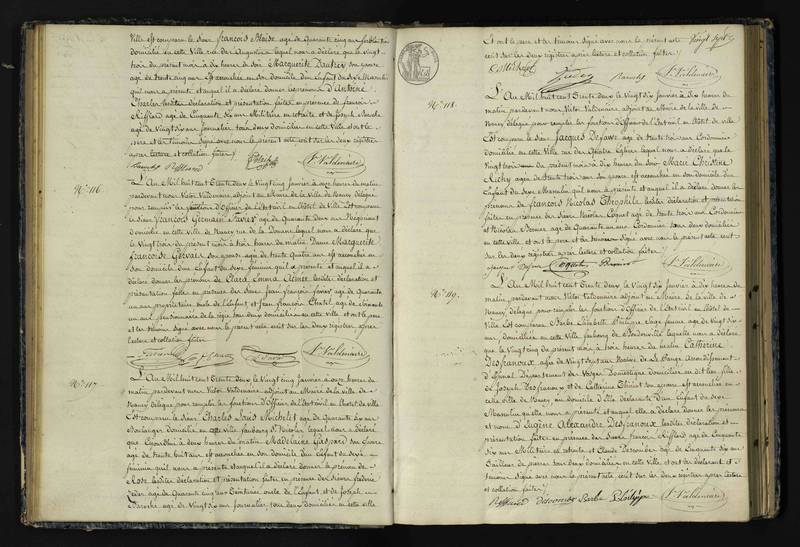 Ville est comparu le Sieur François Blaise agé de Quarante cinq ans
domicilié en cette Ville rue des Augustins lequel nous a déclaré que le vingt
trois du présent mois à dix heures du soir Marguerite son épouse
agée de trente cinq ans est accouchée en son domicile d'un Enfant du sexe Masculin
qu'il nous a présenté et auquel il a déclaré donner les prénoms d'Antoine
Charles lesdites déclaration et présentation faites en présence de François
Riffard agé de Cinquante six ans Militaire en retraite et de Joseph
agé de Vingt six ans Journalier, tous deux domiciliés en cette Ville et ont le
père et les témoins signé avec nous le présent acte écrit sur les deux registres
après lecture et collation faites
N.° 116
L'An Mil huit cent Trente deux le Vingt cinq Janvier à onze heures du matin
pardevant nous Victor Valdenaire adjoint au Maire de la Ville de Nancy délégué
pour remplir les fonctions d'Officier de l'Etat civil en l'hôtel de Ville Est comparu
le Sieur François Germain agé de Quarante deux ans Négociant
domicilié en cette Ville de Nancy rue de la Douane lequel nous a déclaré que
le Vingt trois du présent mois à trois heures du matin Dame Marguerite
Françoise Gervais son épouse agée de trente Quatre ans est accouchée en
son domicile d'un Enfant du sexe féminin qu'il a présenté et auquel il a
déclaré donner les prénoms de Clara Emma Aimée lesdites déclaration et
présentation faites en présence des Sieurs Jean François agé de Quarante
un ans propriétaire oncle de l'Enfant et Jean François Chatel agé de
un ans tous deux domiciliés en cette Ville et ont le père
et les témoins signé avec nous le présent acte écrit sur les deux registres après
lecture et collation faites
N.° 117
L'An Mil huit cent Trente deux le Vingt cinq Janvier à onze heures du
matin pardevant nous Victor Valdenaire adjoint au Maire de la Ville de
Nancy délégué pour remplir les fonctions d'Officier de l'Etat civil en l'hôtel de Ville
Est comparu le Sieur Charles Louis Michelet agé de Quarante six ans
Boulanger domicilié en cette Ville faubourg St Nicolas lequel nous a déclaré
que à deux heures du matin Madelaine Gaspard son épouse
agée de trente huit ans est accouchée en son domicile d'un Enfant du sexe
féminin qu'il nous a présenté et auquel il a déclaré donner le prénom de
Rose lesdites déclaration et présentation faites en présence des Sieurs Frédéric
agé de Quarante cinq ans oncle de l'Enfant et de Joseph
agé de Vingt six ans Journalier, tous deux domiciliés en cette Ville
Et ont le père et les témoins signé avec nous le présent acte
écrit sur les deux registres après lecture et collation faites
N.° 118.
L'An Mil huit cent Trente deux le Vingt six Janvier à dix heures du
matin pardevant nous Victor Valdenaire adjoint au Maire de la ville de
Nancy délégué pour remplir les fonctions d'Officier de l'Etat civil en l'hôtel de Ville
Est comparu le Sieur Jacques agé de trente trois ans Cordonnier
domicilié en cette Ville rue des Quatre Eglises lequel nous a déclaré que le
Vingt trois du présent mois à dix heures du soir Marie Christine
Richy agée de trente trois ans son épouse est accouchée en son domicile d'un
Enfant du sexe Masculin qu'il nous a présenté et auquel il a déclaré donner les
prénoms de François Nicolas Théophile lesdites déclaration et présentation
faites en présence des Sieurs Nicolas Coquet agé de trente trois ans Cordonnier
et Nicolas agé de Quarante un ans Cordonnier tous deux domiciliés
en cette ville et ont le père et les témoins signé avec nous le présent acte écrit
sur les deux registres après lecture et collation faites
N.° 119.
L'An Mil huit cent Trente deux le Vingt six Janvier à dix heures du
matin, pardevant nous Victor Valdenaire adjoint au Maire de la ville de
Nancy délégué pour remplir les fonctions d'Officier de l'Etat civil en l'hôtel de
Ville Est comparue Barbe Elisabeth Philippe Sage femme agée de Vingt six
ans, domiciliée en cette Ville faubourg de laquelle nous a déclaré
que le Vingt cinq du présent mois à trois heures du matin Catherine
Desfranoux agée de Vingt huit ans Native de Arrondissement
d'Epinal Département des Vosges Domestique domiciliée audit lieu, fille
de Joseph Desfranoux et de Catherine son épouse est accouchée en
cette Ville de Nancy au domicile d'Elle déclarante d'un Enfant du sexe
Masculin qu'elle nous a présenté et auquel elle a déclaré donner les prénoms
et nom d'Eugène Alexandre Desfranoux lesdites déclaration et
présentation faites en présence des Sieurs François Riffard agé de Cinquante
six ans Militaire en retraite et Claude agé de Cinquante six ans
tous deux domiciliés en cette ville et ont la déclarante et
témoins signé avec nous le présent acte écrit sur les deux registres après lecture
et collation faites